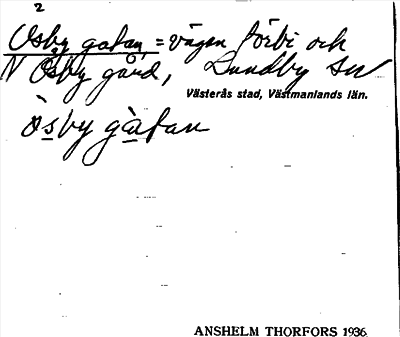 2
Ösby gatan, = vägen förbi och
N Ösby gård, Lundby sn
Västerås stad, Västmanlands län.
Ö̀sby gàtan
ANSHELM THORFORS 1936.